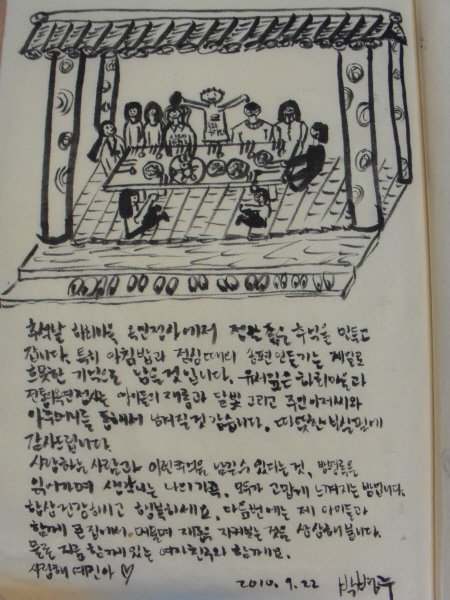 추석날 하회마을 옥연정사에서 정말 좋은 추억을 만들고
갑니다. 특히 아침밥과 점심때의 송편만들기는 제일로
흐뭇한 기억으로 남을 것 입니다. 유서깊은 하회마을과
전통 옥연정사는 아이들의 재롱과 달빛 그리고 주인아저씨와
아주머니들 통해서 남겨질 것 같습니다. 따뜻한
감사드립니다.
사랑하는 사람과 이런 추억을 남길 수 있다는 것, 방명록을
읽어가며 생각나는 나의 가족, 모두가 고맙게 느껴지는 밤입니다.
항상 건강하시고 행복하세요. 다음번에는 제 아이들과
함께 큰 집에서 재롱을 지켜보는 것을 상상해봅니다.
물론 지금 함께 있는 여자친구와 함께요.
사랑해 예민아 ♡
2010. 9. 22